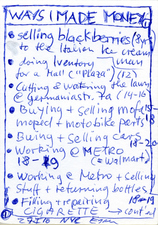 WAYS I MADE MONEY
• selling blackberries (8yrs)
to the Italian ice cream man
• doing Inventory
for a Mall ("Plaza") (12)
• Cutting & watering the lawn
@ Germaniastr. (14-16)
• Buying + selling mofa
moped + motobike parts
• Buying + Selling cars 18-20
• Working @ METRO
18-19 (≈ Walmart)
• Working @ Metro + selling
Stuff + returning bottles
• Filling + repairing 18-19
CIGARETTE → cont'd
2716 NYC